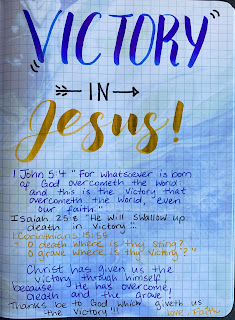 "VICTORY"
IN
Jesus!
1 John 5:4 "For whatsoever is born
of God overcometh the world
and this is the victory that
overcometh the world, "even
our faith."
Isaiah 25:8 "He will swallow up
death in victory..."
1 Corinthians 15:55
"O death where is thy sting?
O grave where is thy victory?"
Christ has given us the
victory through himself
because He has overcome,
death and the grave!
Thanks be to God which giveth us
the Victory!!!
love, Faith